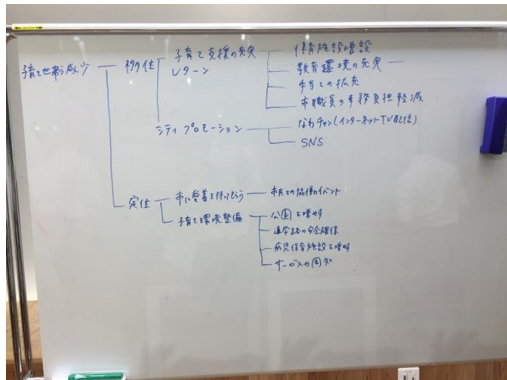 子育て世帯減少
移住
子育て支援の充実
Uターン
保育施設増設
教育環境の充実
手当ての拡充
市職員の事務負担軽減
シティプロモーション
なわチャン(インターネットTV配信)
SNS
定住
市に愛着を持ってもらう
市民との協働イベント
子育て環境整備
公園を増やす
通学路の安全確保
病児保育施設を増やす
サービスの周知